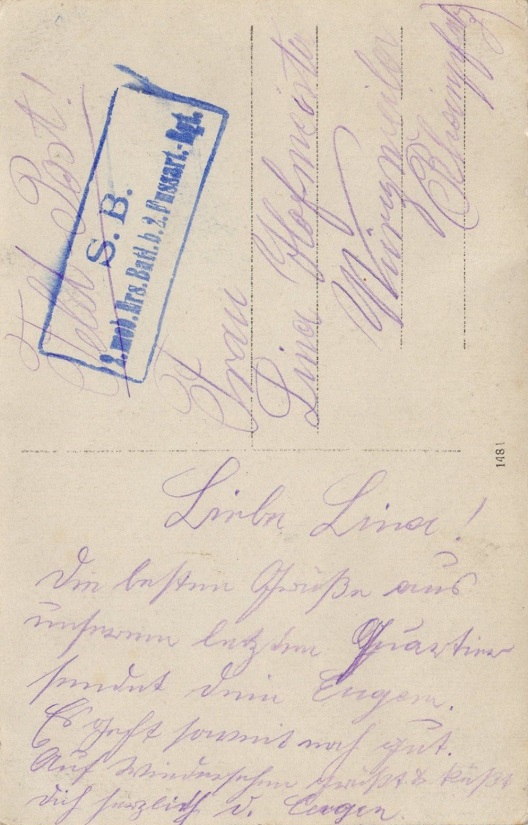 Feld Post!
S. B.
2. mob. Ers. Batl. b. 2. Fussart.-Rgt.
Frau
Lina Hofmeister
Würzweiler
(Rheinpfalz)
1481
Liebe Lina!
Die besten Grüße aus
unserem letzten Quartier
sendet dein Eugen.
Es geht soweit noch gut.
Auf Wiedersehen grüßt & küßt
dich herzlich d. Eugen.